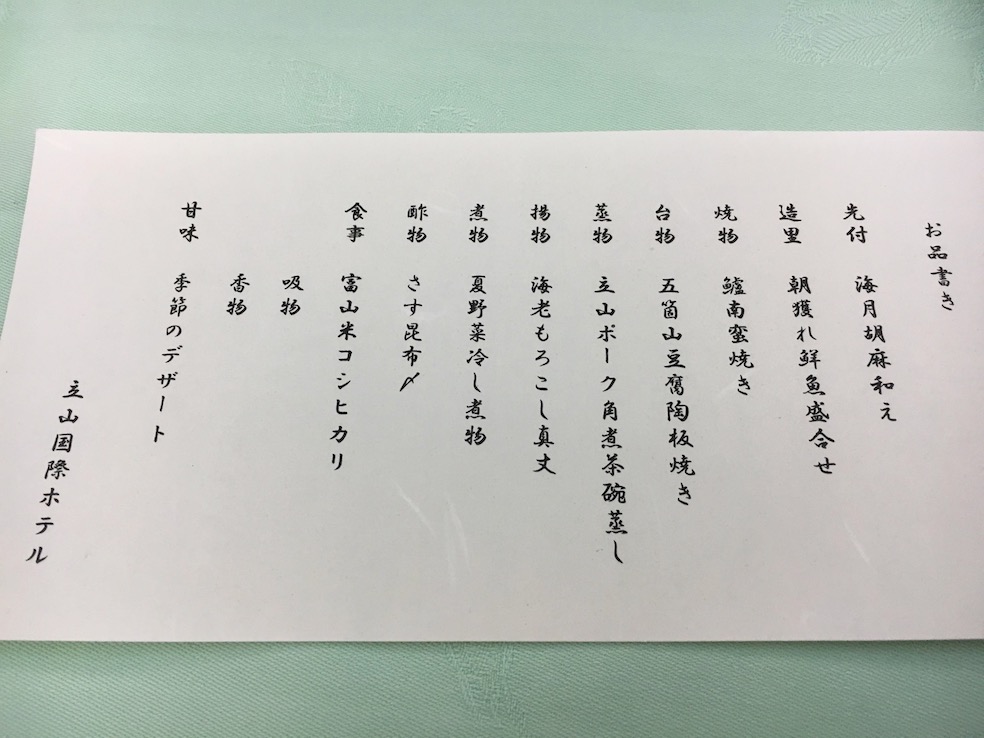 お品書き
先付 海月胡麻和え
造里 朝獲れ鮮魚盛合せ
焼物 鱸南蛮焼き
台物 五箇山豆腐陶板焼き
蒸物 立山ポーク角煮茶碗蒸し
揚物 海老もろこし真丈
煮物 夏野菜冷し煮物
酢物 さす昆布〆
食事 富山米コシヒカリ
吸物
香物
甘味 季節のデザート
立山国際ホテル